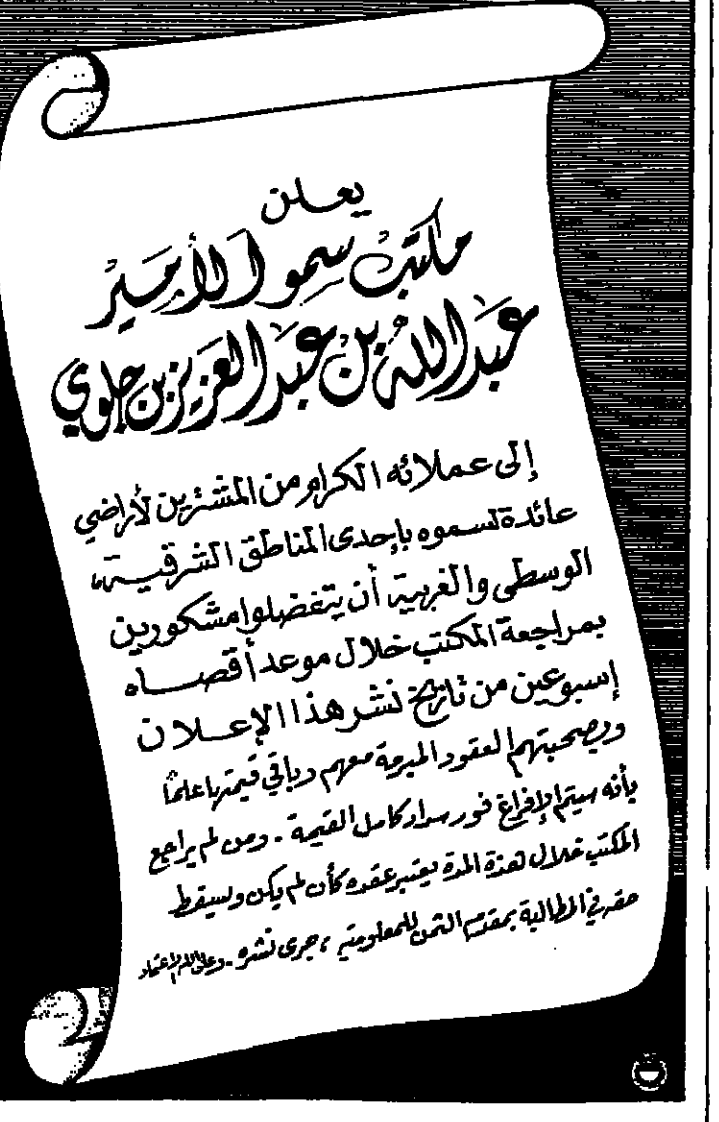 يعلن
مكتب سمو الأمير
عبد الله بن عبد العزيز بن جلوي
إلى عملائه الكرام من المشترين لأراضي
عائدة لسموه بإحدى المناطق الشرقية،
الوسطى والغربية أن يتفضلوا مشكورين
بمراجعة المكتب خلال موعد أقصاه
إسبوعين من تاريخ نشر هذا الإعلان
وبصحبتهم العقود المبرمة معهم وباقي قيمتها علماً
بأنه سيتم الإفراغ فور سداد كامل القيمة . ومن لم يراجع
المكتب خلال هذة المدة يعتبر عقده كأن لم يكن ويسقط
حقه في المطالبة بمقدم الثمن للمعلومية ، جرى نشره . وعلى الله الاعتماد